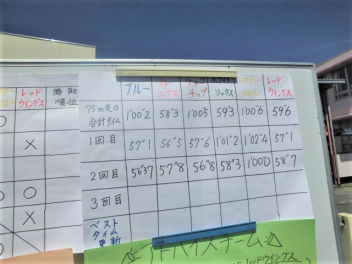 レッド
ウイングス
勝敗
順位
ブルー
チップ
ソックス
レッド
ウイングス
75m走の
合計タイム
1'00"2 58"3 1'00"5 59"3 1'00"6 59"6
1回目 57"1 56"5 57"6 1'01"2 1'02"4 57"1
2回目 56"37 57"8 56"8 58"3 1'00"0 58"7
3回目
ベスト
タイム
更新
アドバイスチーム
レッドウイングス